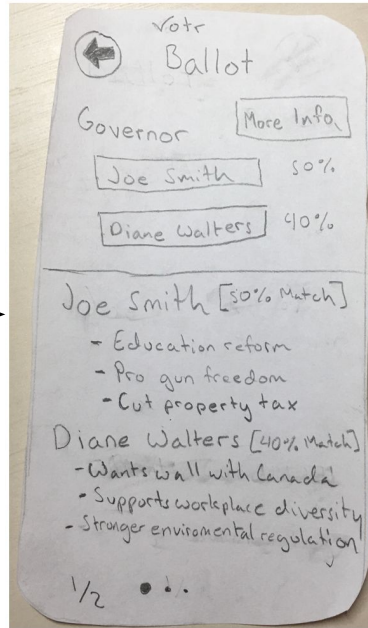 Votr
Ballot
Governor More Info
Joe Smith 50%
Diane Walters 40%
Joe Smith [50% Match]
- Education reform
- Pro gun freedom
- Cut property tax
Diane Walters [40% Match]
- Wants wall with Canada
- Supports workplace diversity
- Stronger enviromental regulation
1/2